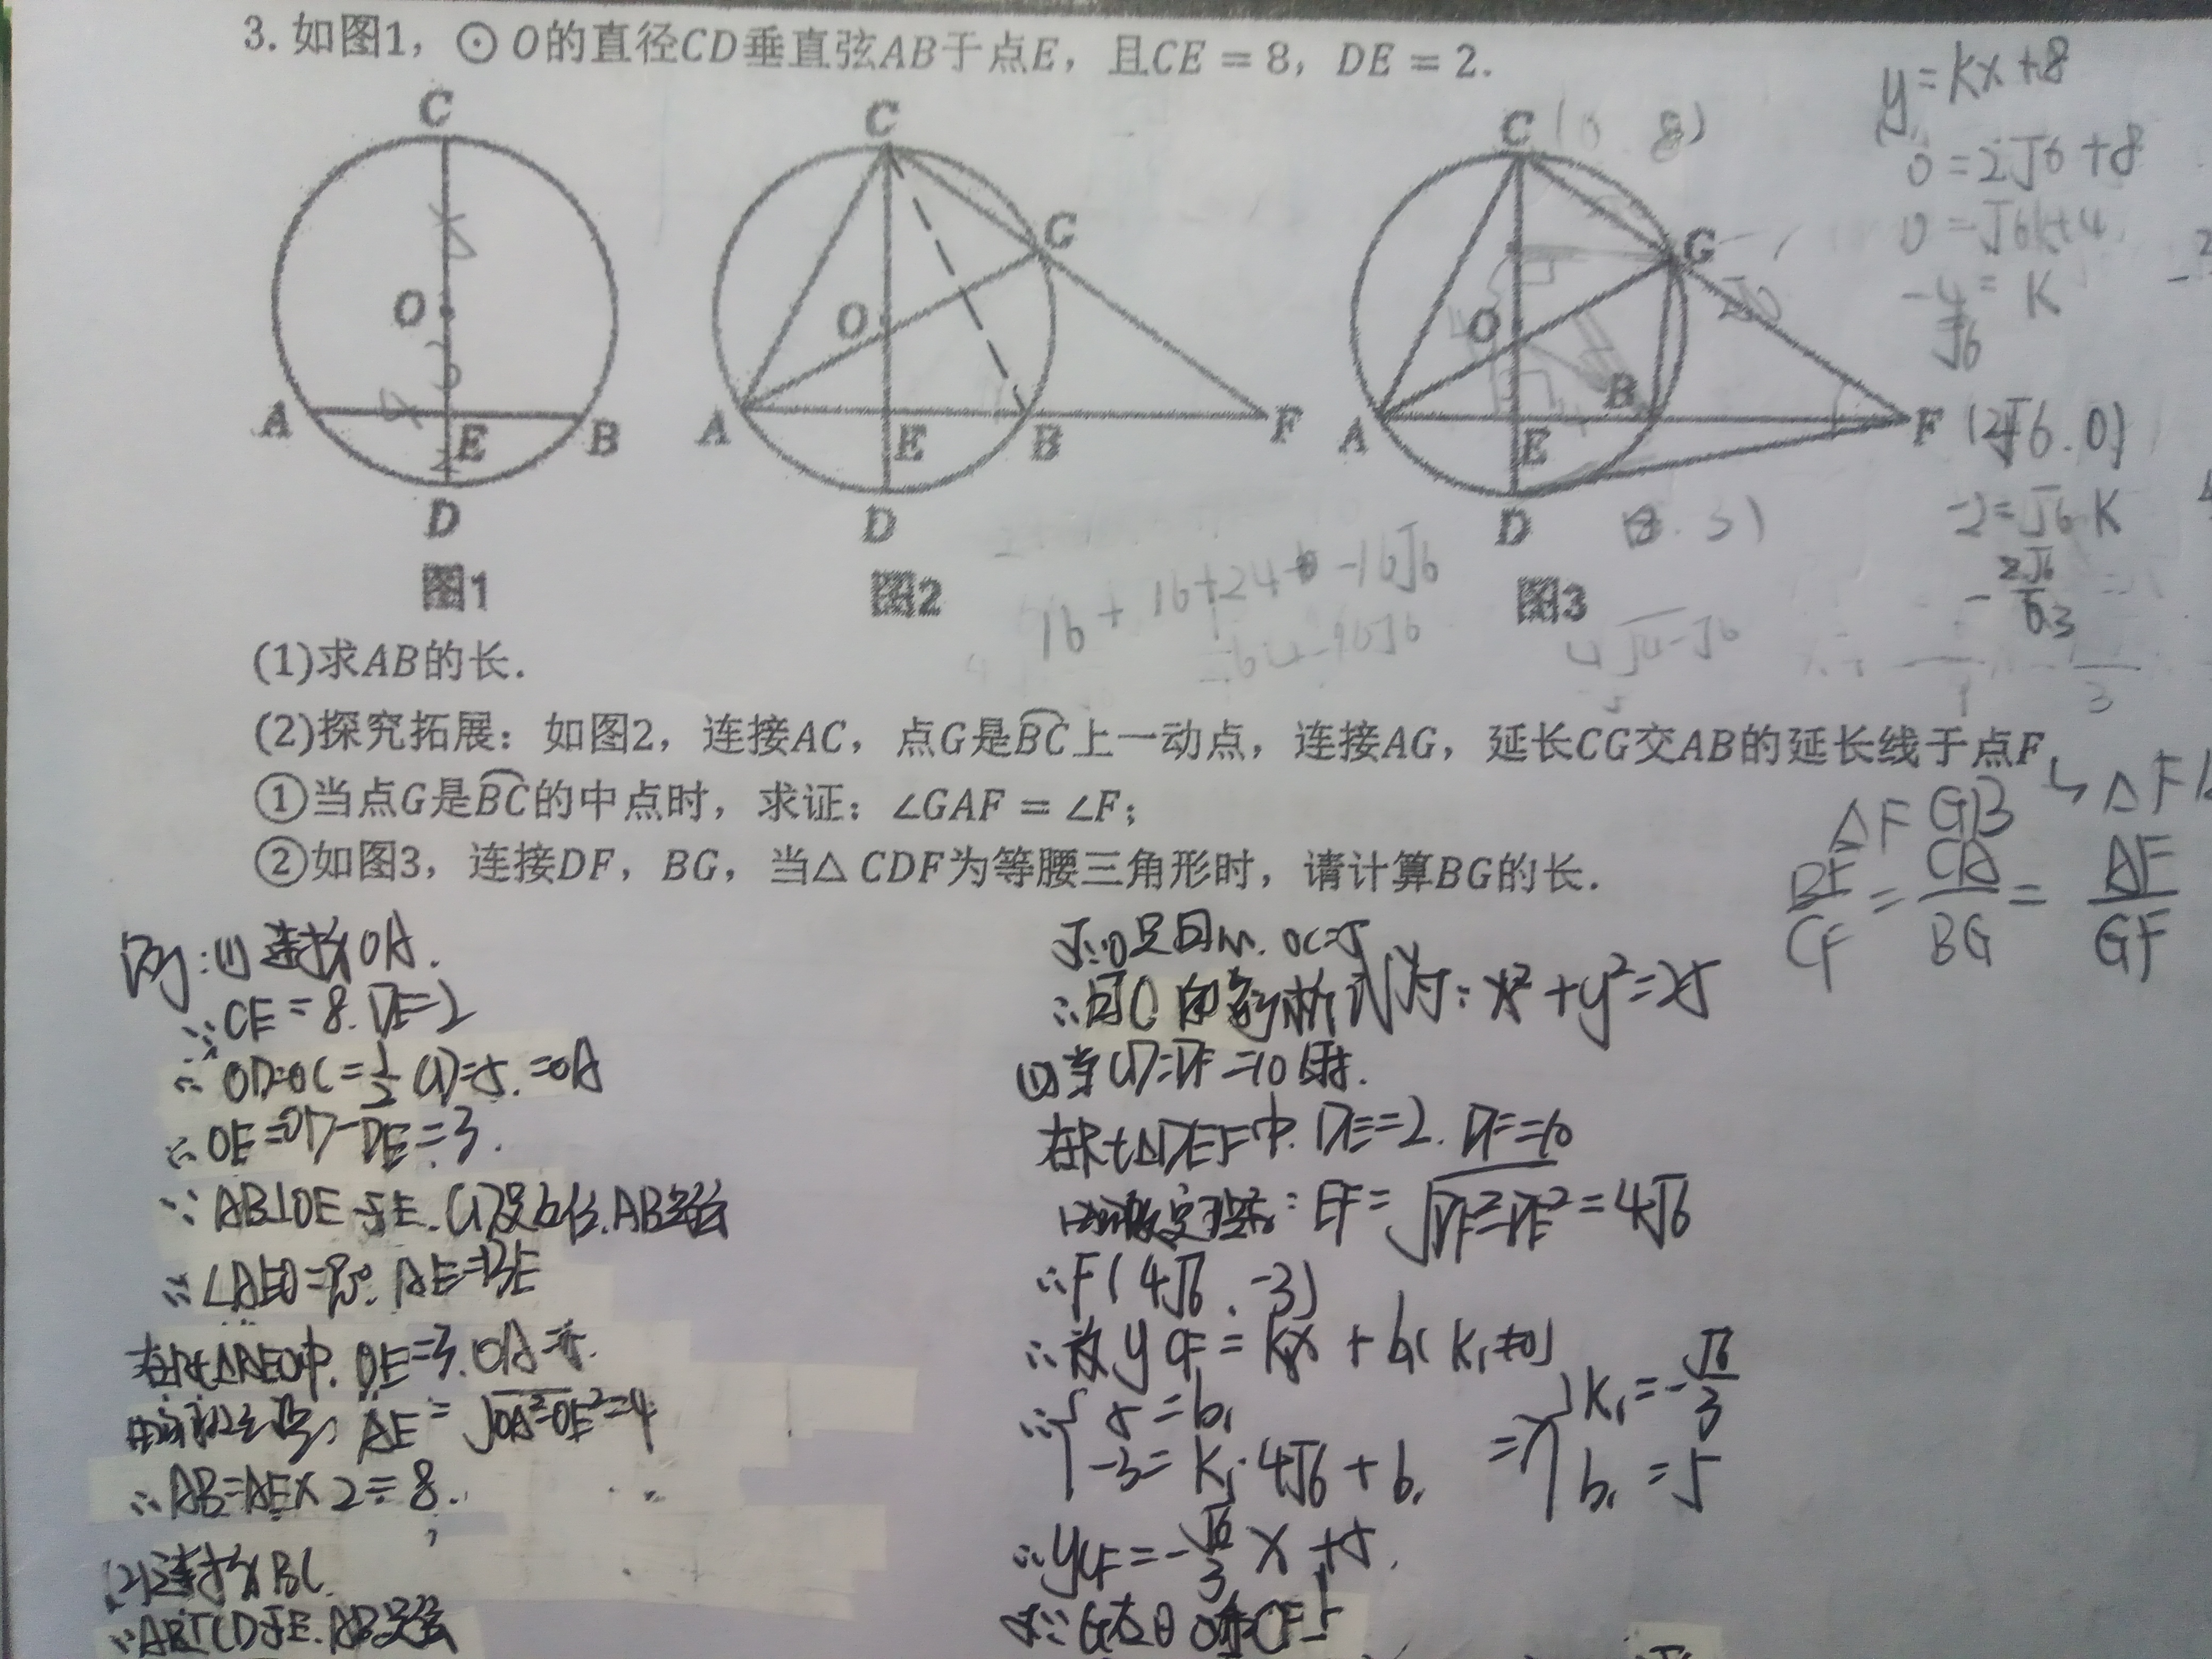 3. 如图1，⊙O的直径CD垂直弦AB于点E，且CE = 8，DE = 2.
C
O
A
E
B
D
图1
C
G
O
A
E
B
F
D
图2
C (0 8)
G
O
B
A
E
F
D
图3
y = kx + 8
0 = 2√6 + 8
0 = √6k+4
-4/√6 = K
(2√6. 0)
-2 = √6 K
16 + 16+24 -16√6
(1)求AB的长.
(2)探究拓展：如图2，连接AC，点G是BC上一动点，连接AG，延长CG交AB的延长线于点F
①当点G是BC的中点时，求证：∠GAF = ∠F；
②如图3，连接DF，BG，当△CDF为等腰三角形时，请计算BG的长.
△FGB ∽ △F
BF/CF = CA/BG = AF/GF
(1) 连接OA.
∵CE = 8. DE=2
∴ OD=OC = 1/2 CD=5. =OA
∴ OE=OD-DE=3.
∵ AB⊥OE于E. CD是直径. AB是弦
∴ ∠AEO=90°. AE=BE
在Rt△AEO中. OE=3. OA=5.
AE = √OA²-OE²=4
∴ AB=AE×2=8.
(2)连接BC
∵AB⊥CD于E. AB是弦
OC=5
∴圆O的解析式为: x²+y²=25
(1)当CD=DF=10时.
在Rt△DEF中. DE=2. DF=10
由勾股定理: EF = √DF²-DE² = 4√6
∴F(4√6. -3)
∴设yCF = K₁x + b₁(K₁≠0)
∴{ 5 = b₁
-3 = K₁·4√6 + b₁
=>{ K₁ = -√6/3
b₁ = 5
∴yCF = -√6/3 x + 5.
∵G在⊙O和CF上